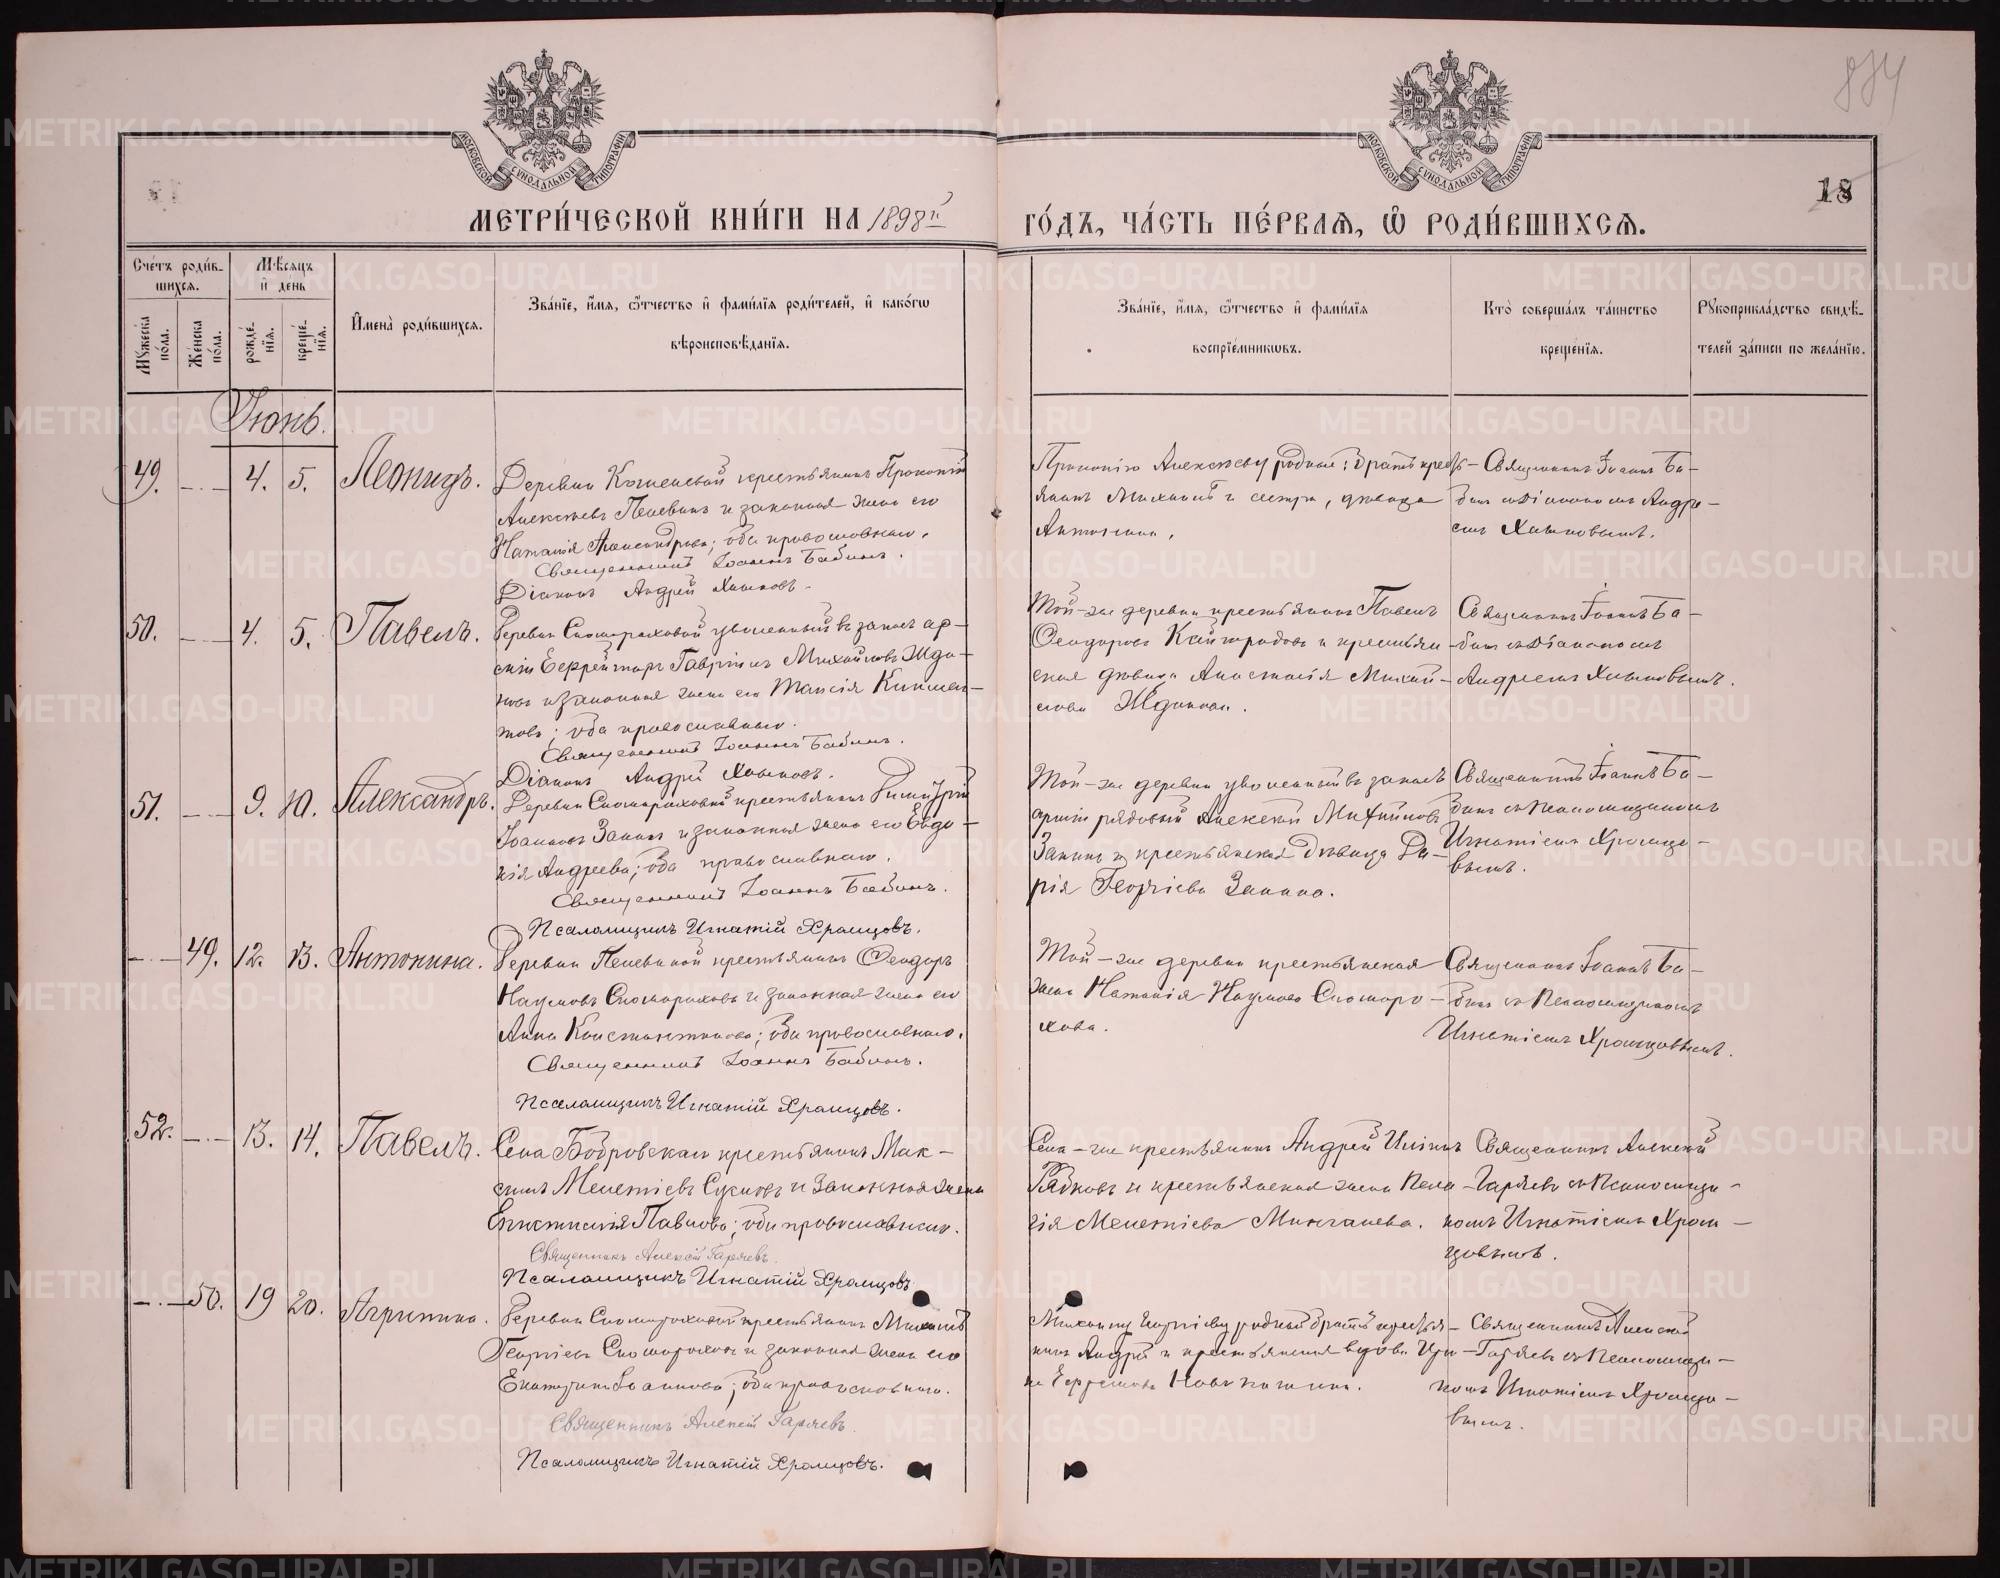 834
18
МОСКОВСКОЙ СѴНОДАЛЬНОЙ ТИПОГРАФІИ
МОСКОВСКОЙ СѴНОДАЛЬНОЙ ТИПОГРАФІИ
МЕТРИ́ЧЕСКОЙ КНИ́ГИ НА 1898й ГО́ДЪ, ЧА́СТЬ ПЕ́РВАѦ, Ѽ РОДИ́ВШИХСѦ.
Сче́тъ роди́в-
шихсѧ.
Мꙋ́жеска по́ла.
Же́нска по́ла.
Мѣ́сѧцъ и҆ де́нь
рожде́-нїѧ.
креще́-нїѧ.
И҆мена̀ роди́вшихсѧ.
Зва́нїе, и҆́мѧ, ѻ҆́тчество и҆ фами́лїѧ роди́телей, и҆ како́гѡ
вѣроисповѣ́данїѧ.
Зва́нїе, и҆́мѧ, ѻ҆́тчество и҆ фами́лїѧ
воспрїе́мникѡвъ.
Кто̀ соверша́лъ та́инство
креще́нїѧ.
Рꙋкоприкла́дство свидѣ́-
телей за́писи по жела́нїю.
Іюнь.
49. 4. 5. Леонидъ.
Алексѣевъ Пелевинъ и законная жена его
Наталія Александрова; оба православнаго.
Священникъ Іоаннъ Бабинъ.
Діаконъ Андрей Хлыновъ.
Прокопію Алексѣеву родные: братъ кресть-
янинъ Михаилъ и сестра, дѣвица
Антонина.
Священникъ Іоаннъ Ба-
бинъ съ Діакономъ Андре-
емъ Хлыновымъ.
50. 4. 5. Павелъ.
Деревни Скомороховой уволенный въ запасъ ар-
міи Ефрейторъ Гавріилъ Михайловъ Жда-
новъ и законная жена его Таисія Климен-
това; оба православнаго.
Священникъ Іоаннъ Бабинъ.
Діаконъ Андрей Хлыновъ.
Той-же деревни крестьянинъ Павелъ
Ѳеодоровъ Кайгородовъ и крестьян-
ская дѣвица Анастасія Михай-
лова Жданова.
Священникъ Іоаннъ Ба-
бинъ съ Діакономъ
Андреемъ Хлыновымъ.
51. 9. 10. Александръ.
Деревни Скомороховой крестьянинъ Димитрій
Іоанновъ Занинъ и законная жена его Евдо-
кія Андреева; оба православнаго.
Священникъ Іоаннъ Бабинъ.
Псаломщикъ Игнатій Храмцовъ.
Той-же деревни уволенный въ запасъ
арміи рядовый Алексѣй Михайловъ
Занинъ и крестьянская дѣвица Да-
рія Георгіева Занина.
Священникъ Іоаннъ Ба-
бинъ съ Псаломщикомъ
Игнатіемъ Храмцо-
вымъ.
49. 12. 13. Антонина.
Деревни Пелевиной крестьянинъ Ѳеодоръ
Наумовъ Скомороховъ и законная жена его
Анна Константинова; оба православнаго.
Священникъ Іоаннъ Бабинъ.
Псаломщикъ Игнатій Храмцовъ.
Той-же деревни крестьянская
жена Наталія Наумова Скоморо-
хова.
Священникъ Іоаннъ Ба-
бинъ съ Псаломщикомъ
Игнатіемъ Храмцовымъ.
52. 13. 14. Павелъ.
Села Бобровскаго крестьянинъ Мак-
симъ Мелетіевъ Сусловъ и законная жена
Павлова; оба православнаго.
Священникъ Алексій Гаряевъ.
Псаломщикъ Игнатій Храмцовъ
Села-же крестьянинъ Андрей Иліинъ
Рябковъ и крестьянская жена Пела-
гія Мелетіева Минчанева.
Священникъ Алексій
Гаряевъ съ Псаломщи-
комъ Игнатіемъ Храм-
цовымъ.
50. 19 20. Агрипина.
Деревни Скомороховой крестьянинъ Михаилъ
Георгіевъ Скомороховъ и законная жена его
Екатерина Іоаннова; оба православнаго.
Священникъ Алексій Гаряевъ.
Псаломщикъ Игнатій Храмцовъ.
Михаилу Георгіеву родный братъ крестья-
нинъ Андрей и крестьянская вдова Ири-
на Ефремова
Священникъ Алексій
Гаряевъ съ Псаломщи-
комъ Игнатіемъ Храмцо-
вымъ.
METRIKI.GASO-URAL.RU